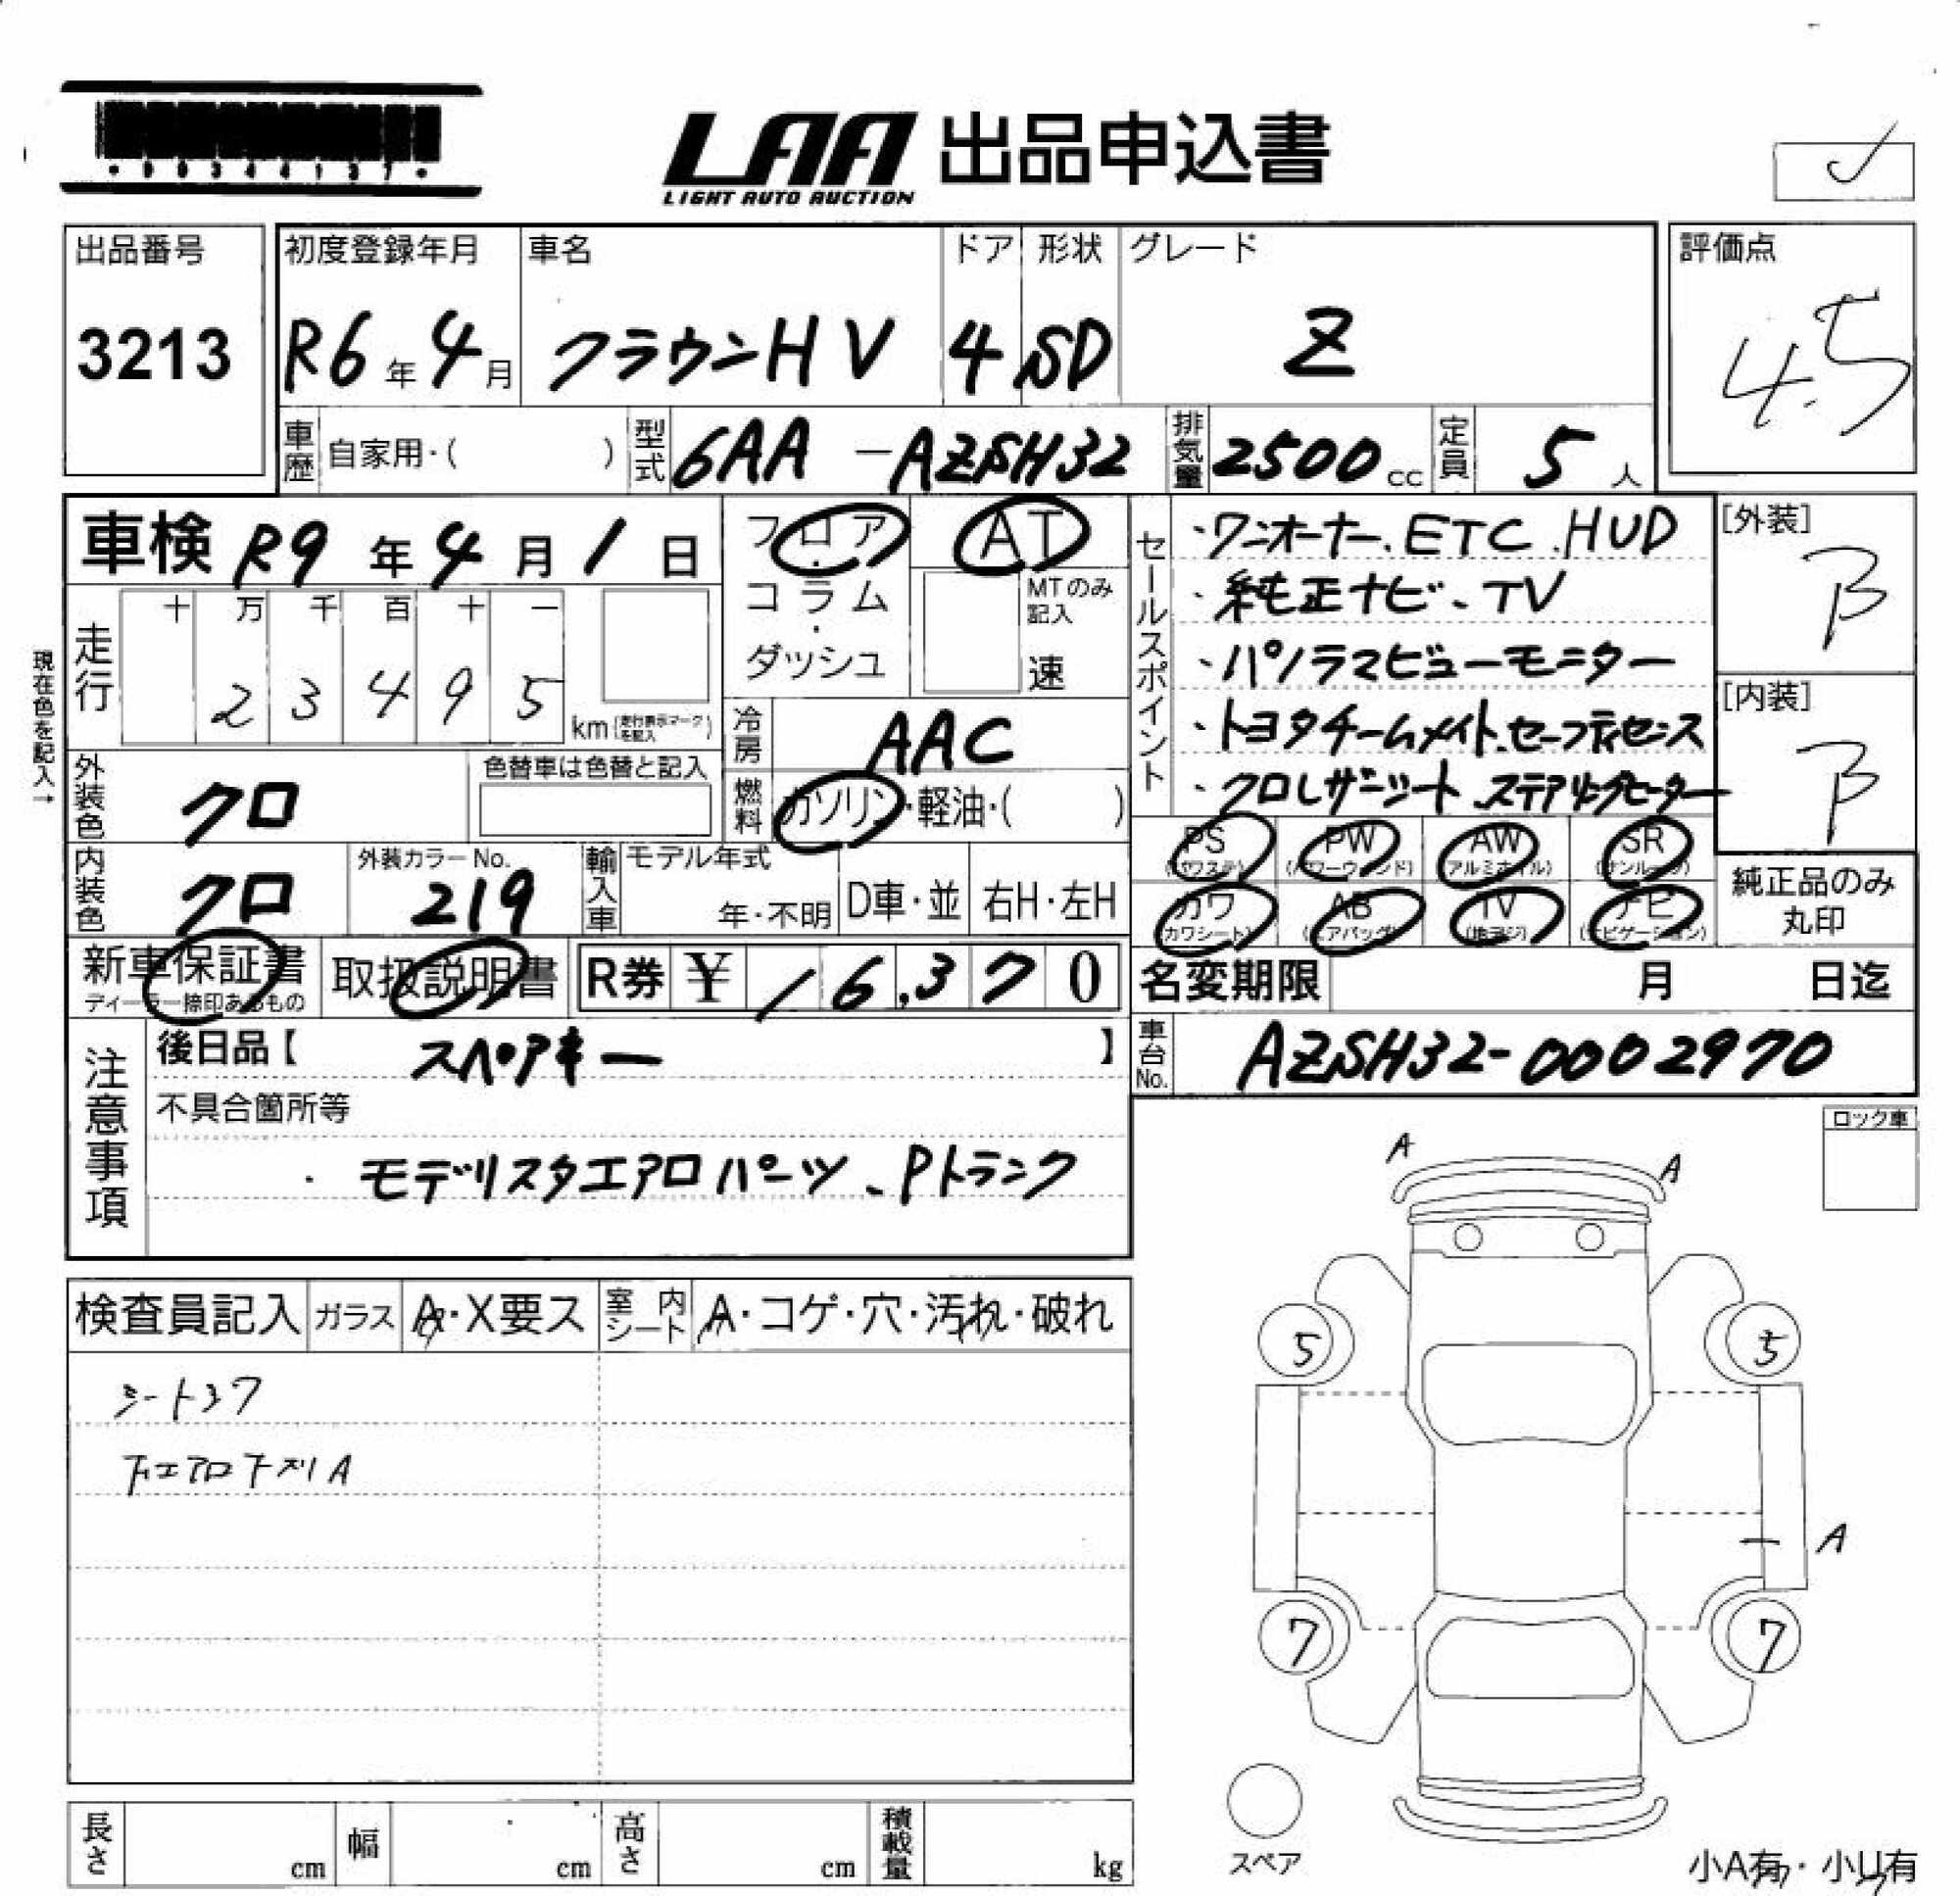 ・00344137・
LAA 出品申込書
LIGHT AUTO AUCTION
出品番号 3213
初度登録年月 R6年4月
車名 クラウンHV
ドア 4
形状 SD
グレード Z
評価点 4.5
車歴 自家用・( )
型式 6AA-AZSH32
排気量 2500cc
定員 5人
車検 R9年4月1日
フロア・コラム・ダッシュ
AT
MTのみ記入 速
セールスポイント
・ワンオーナー、ETC、HUD
・純正ナビ、TV
・パノラマビューモニター
・トヨタチームメイト、セーフティセンス
・クロレザーシート、ステアリングヒーター
[外装] B
[内装] B
現在色を記入→
走行 十万千百十一
23495 km (走行表示マークを記入)
冷房 AAC
燃料 ガソリン・軽油・( )
外装色 クロ
色替車は色替と記入
内装色 クロ
外装カラーNo. 219
輸入車 モデル年式 年・不明 D車・並 右H・左H
PS (パワステ) PW (パワーウィンド) AW (アルミホイル) SR (サンルーフ)
カワ (カワシート) AB (エアバッグ) TV (地デジ) ナビ (ナビゲーション)
純正品のみ丸印
新車保証書 ディーラー捺印あるもの
取扱説明書
R券 ¥16,370
名変期限 月 日迄
注意事項
後日品【 スペアキー 】
車台No. AZSH32-0002970
不具合箇所等
・モデリスタエアロパーツ、Pトランク
ロック車
A A
検査員記入 ガラス A・X要ス 室内シート A・コゲ・穴・汚れ・破れ
シート
エアロ下スリA
5 5
A
7 7
スペア
長さ cm 幅 cm 高さ cm 積載量 kg
小A有・小U有